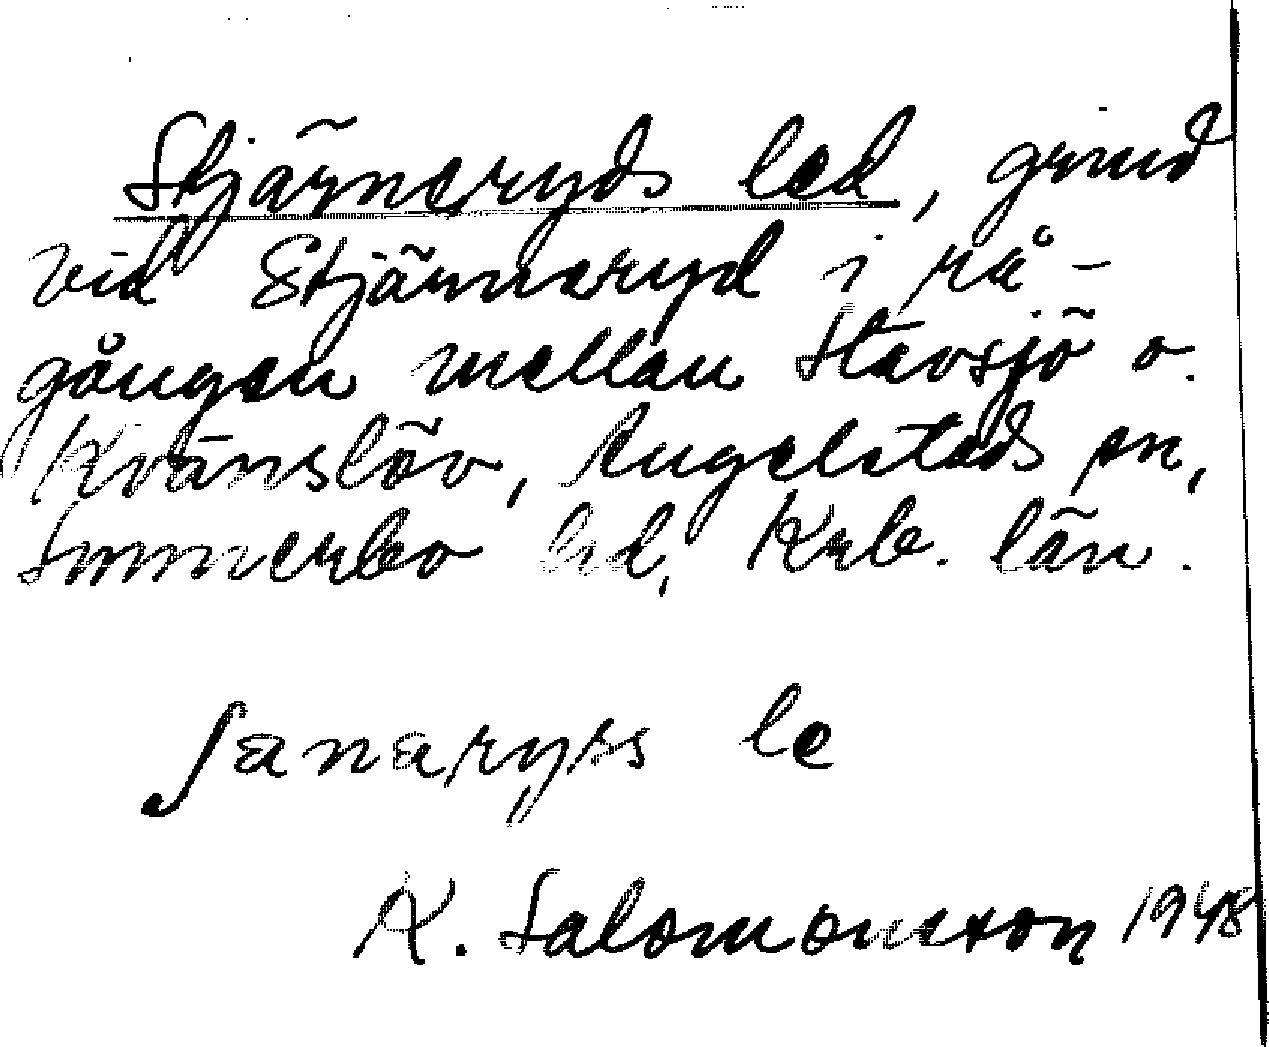 Stjärneryds led, grind
vid Stjärneryd i rå-
gången mellan Stavsjö o.
Kvänslöv, Angelstads sn,
Sunnerbo hd, Krb. län.
ʃanaryss le
K. Salomonsson 1948